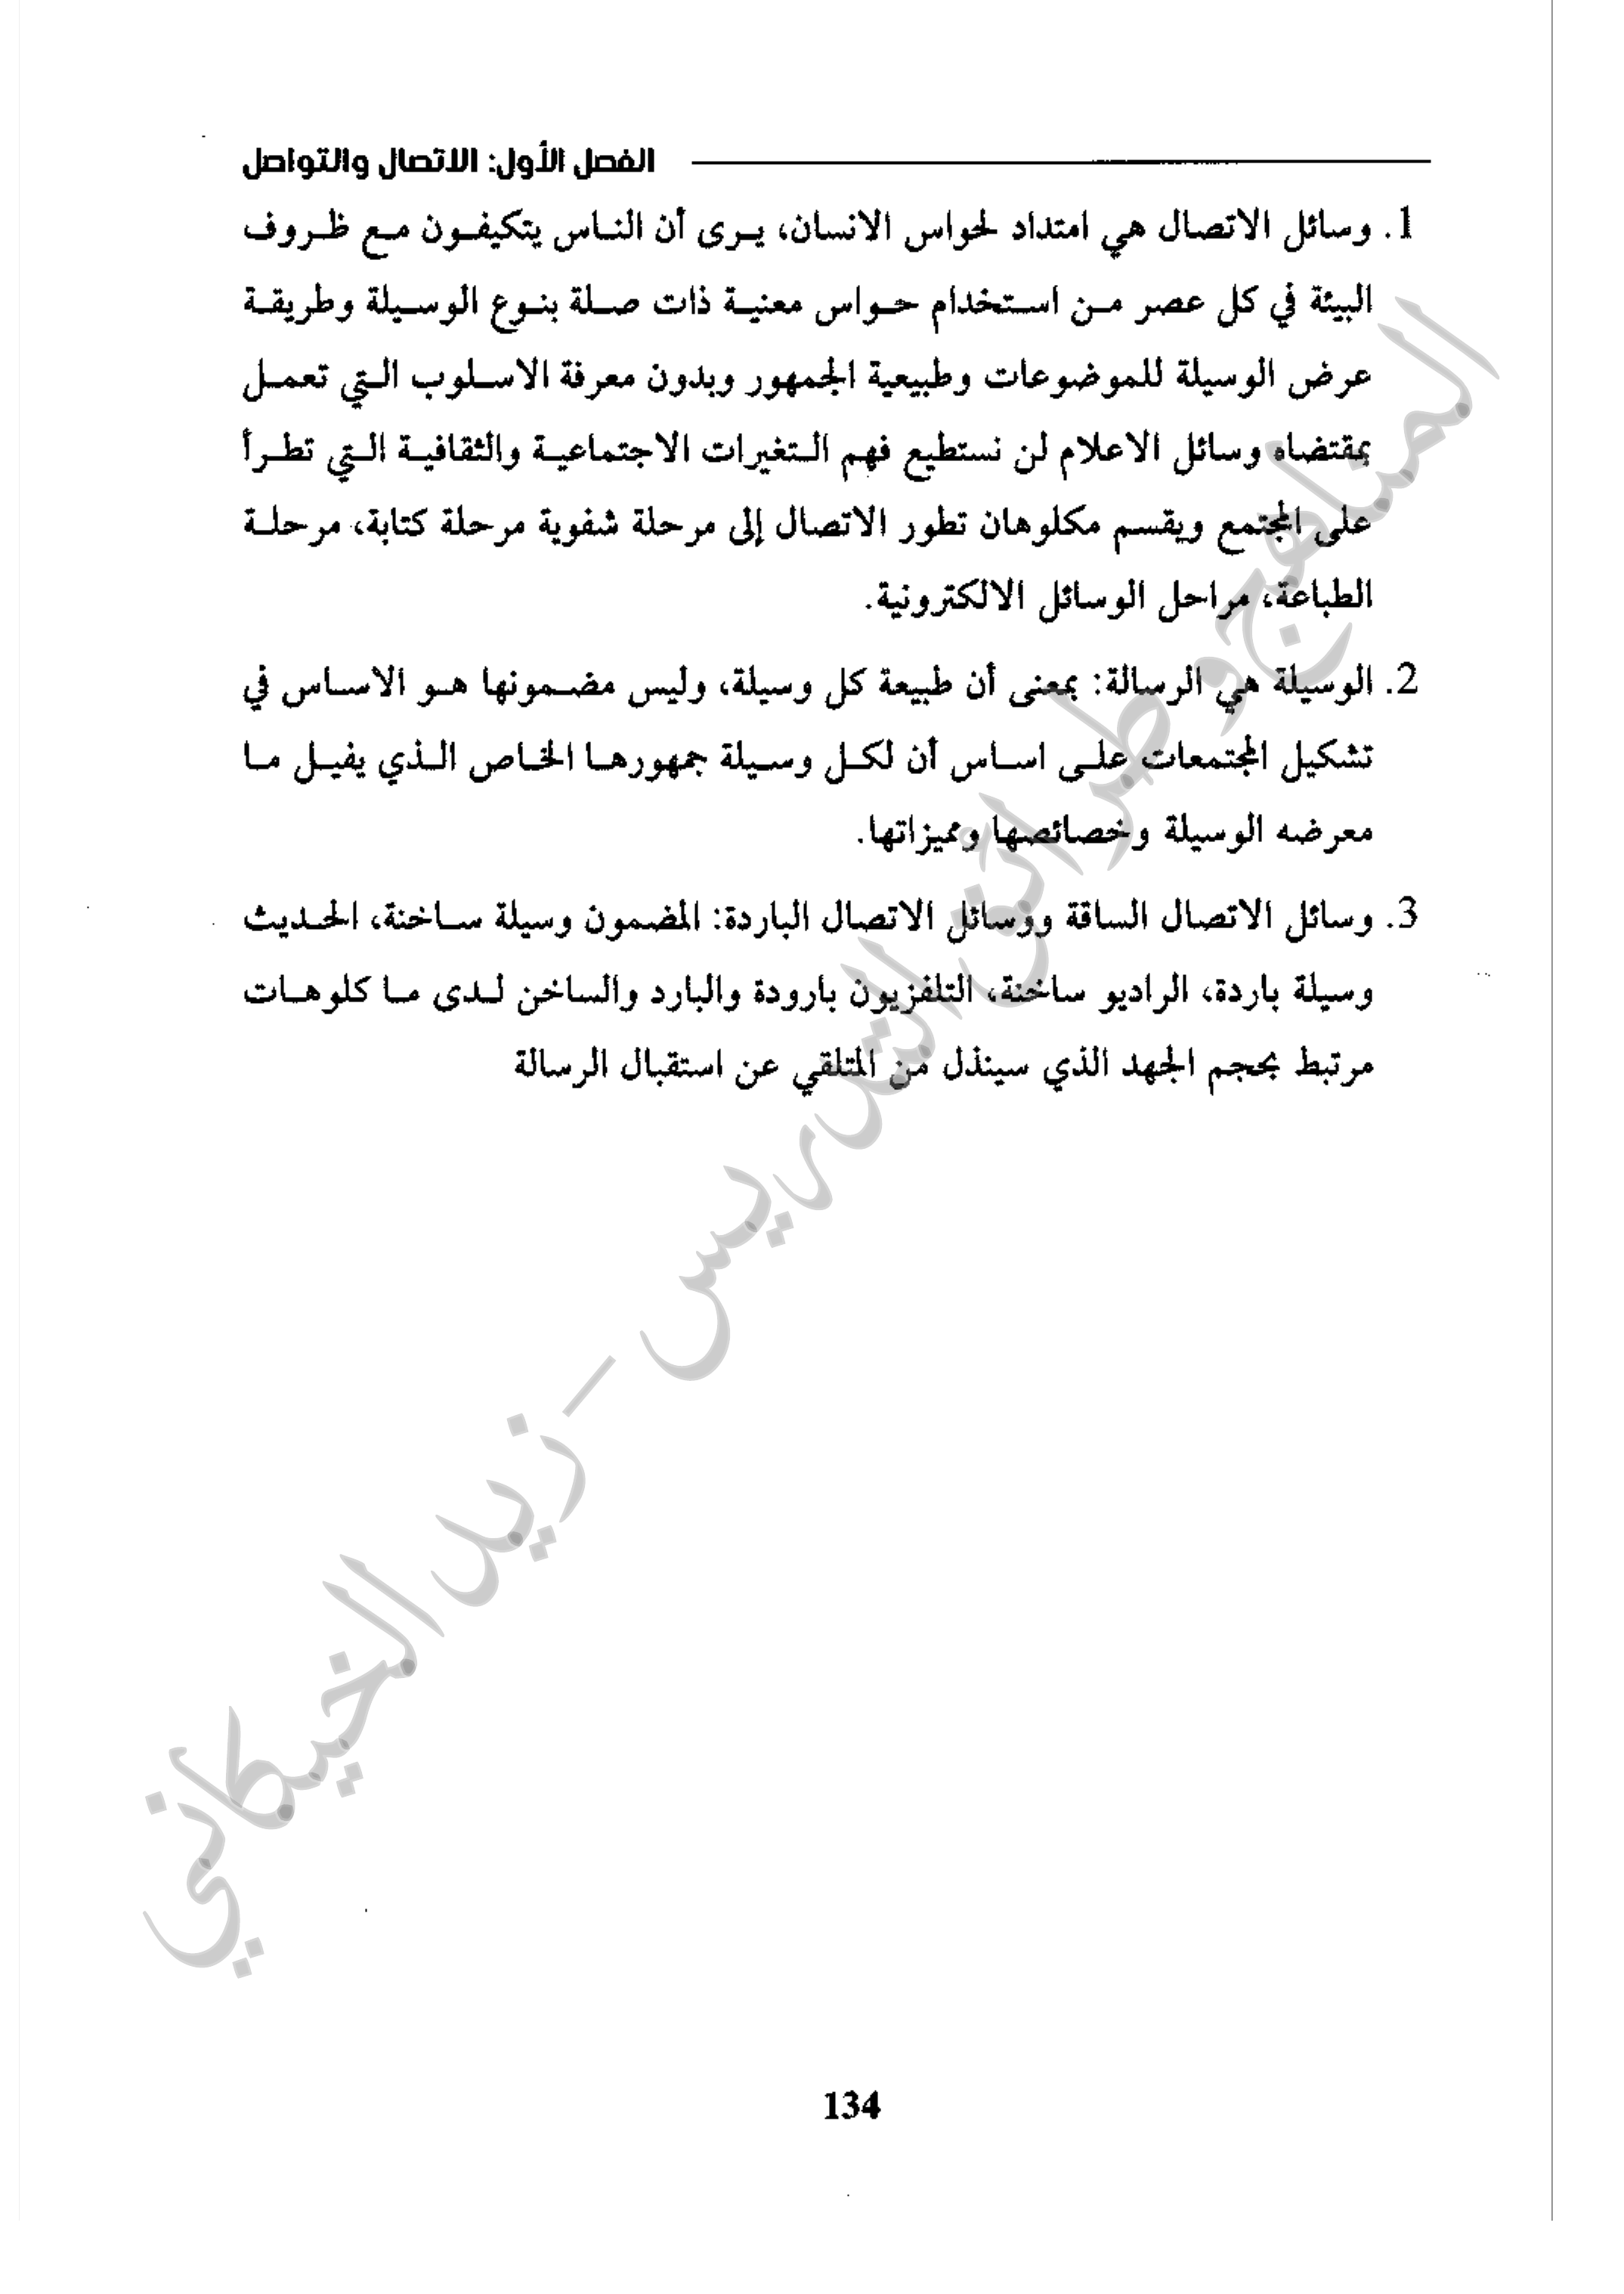 الفصل الأول: الاتصال والتواصل
1. وسائل الاتصال هي امتداد لحواس الانسان، يرى أن الناس يتكيفون مع ظروف
البيئة في كل عصر من استخدام حواس معنية ذات صلة بنوع الوسيلة وطريقة
عرض الوسيلة للموضوعات وطبيعية الجمهور وبدون معرفة الاسلوب التي تعمل
بمقتضاه وسائل الاعلام لن نستطيع فهم التغيرات الاجتماعية والثقافية التي تطرأ
على المجتمع ويقسم مكلوهان تطور الاتصال إلى مرحلة شفوية مرحلة كتابة، مرحلة
الطباعة، مراحل الوسائل الالكترونية.
2. الوسيلة هي الرسالة: بمعنى أن طبيعة كل وسيلة، وليس مضمونها هو الاساس في
تشكيل المجتمعات على اساس أن لكل وسيلة جمهورها الخاص الذي يفيل ما
معرضه الوسيلة وخصائصها ومميزاتها.
3. وسائل الاتصال الساقة ووسائل الاتصال الباردة: المضمون وسيلة ساخنة، الحديث
وسيلة باردة، الراديو ساخنة، التلفزيون بارودة والبارد والساخن لدى ما كلوهات
مرتبط بحجم الجهد الذي سينذل من المتلقي عن استقبال الرسالة
المناهج وطرائق التدريس - زيد الخيكاني
134